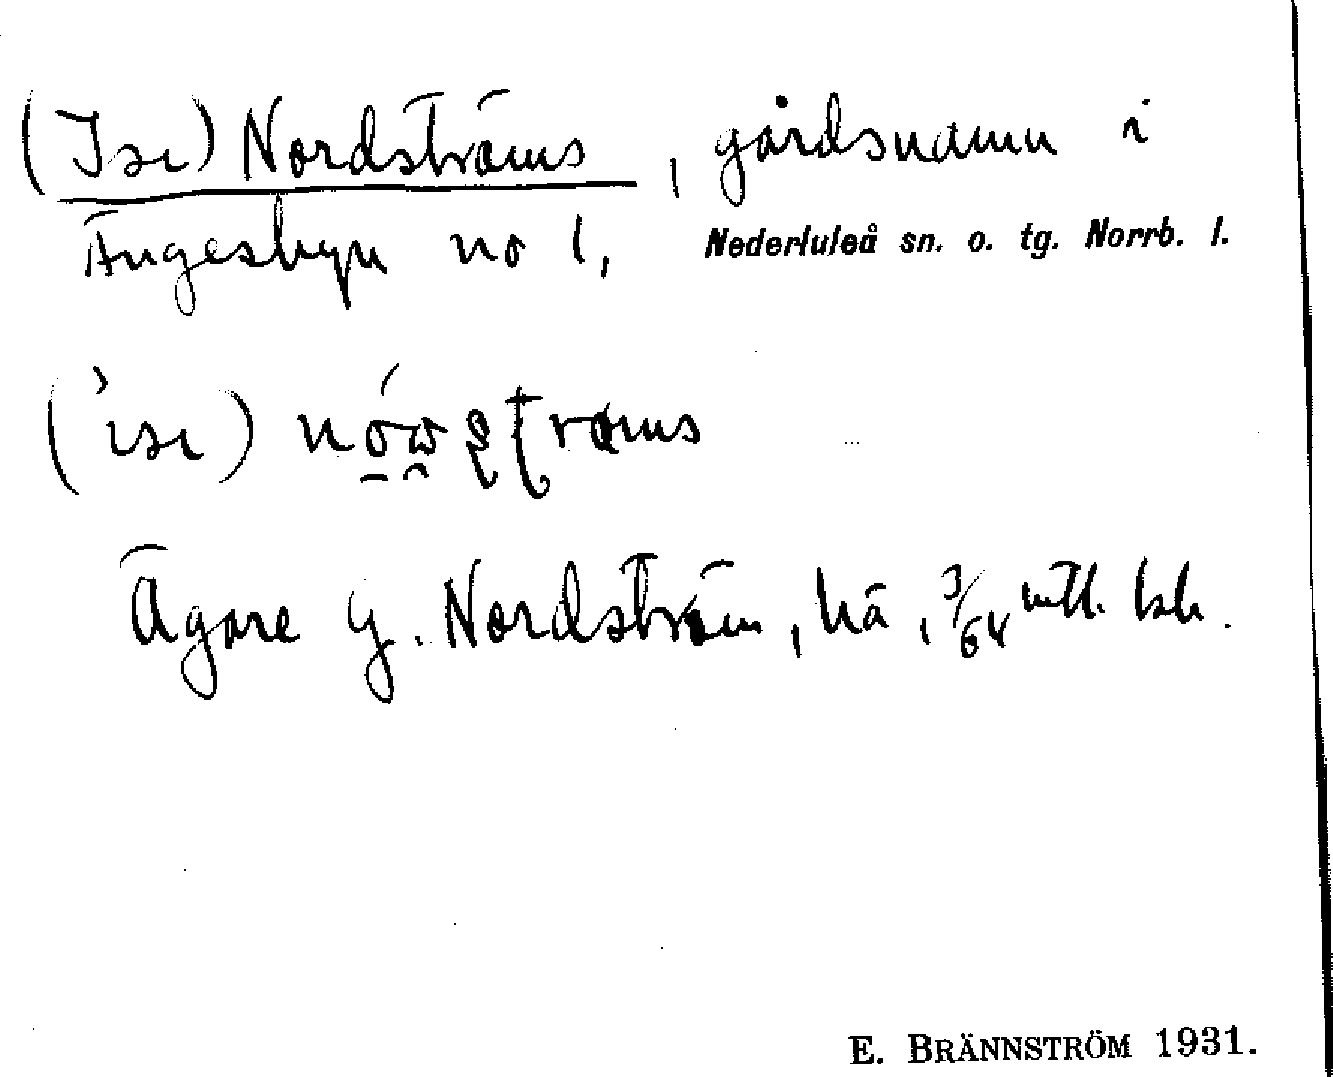 (Ise) Nordströms, gårdsnamn i
Ängesbyn no 1, Nederluleå sn. o. tg. Norrb. l.
Ägare G. Nordström, hä, 3/64 mtl. lsk.
E. BRÄNNSTRÖM 1931.